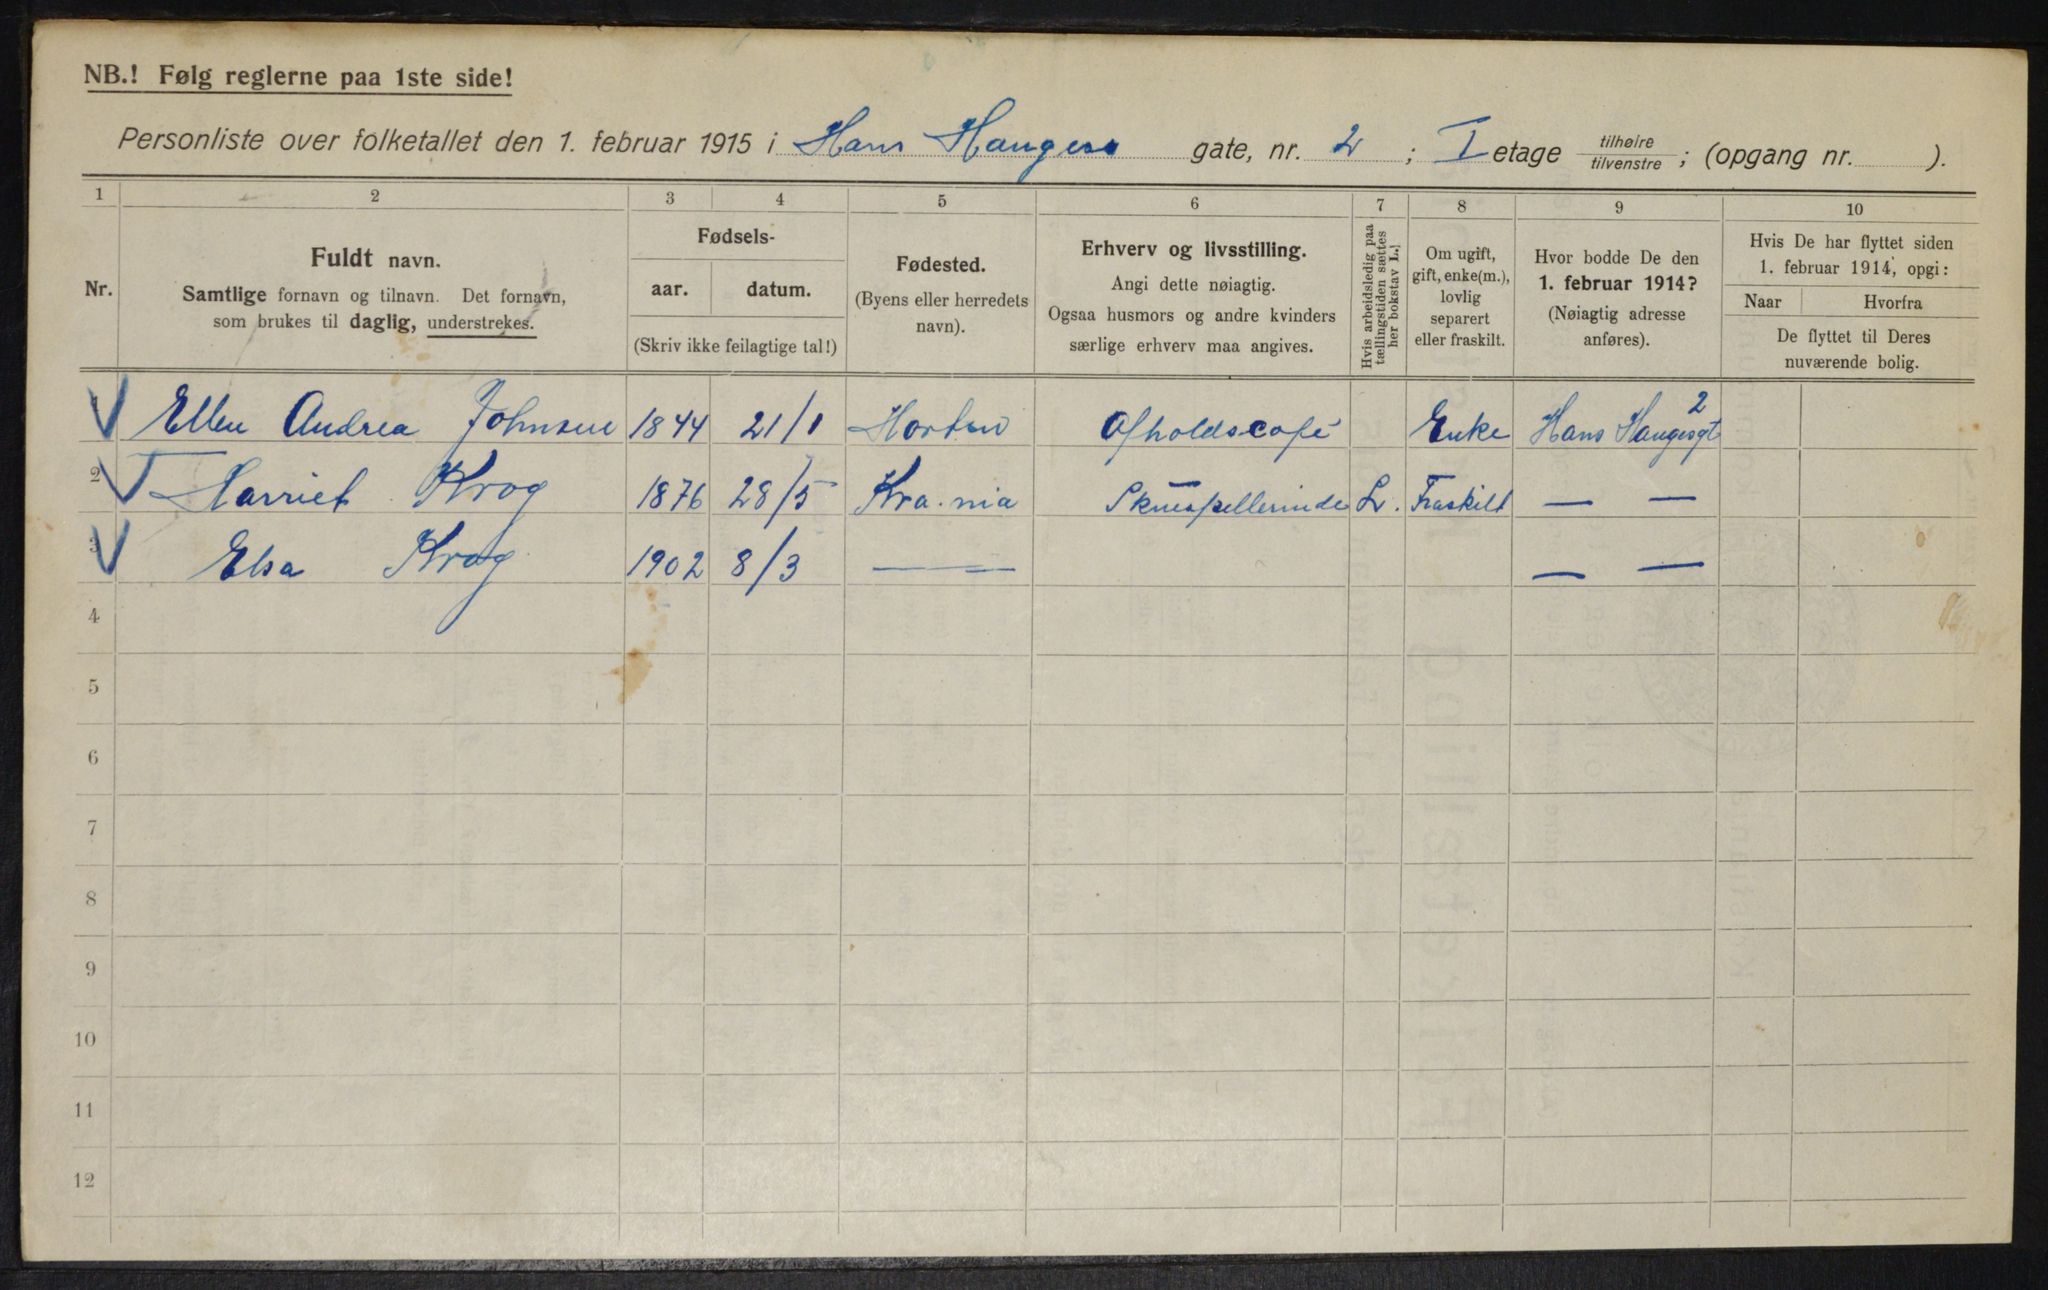 NB.! Følg reglerne paa 1ste side!
Personliste over folketallet den 1. februar 1915 i Hans Hauges gate, nr. 2 ; I etage tilhøire / tilvenstre ; (opgang nr. ).
1 2 3 4 5 6 7 8 9 10
Nr.
Fuldt navn.
Samtlige fornavn og tilnavn. Det fornavn,
som brukes til daglig, understrekes.
Fødsels-
aar. datum.
(Skriv ikke feilagtige tal!)
Fødested.
(Byens eller herredets
navn).
Erhverv og livsstilling.
Angi dette nøiagtig.
Ogsaa husmors og andre kvinders
særlige erhverv maa angives.
Hvis arbeidsledig paa
tællingstiden sættes
her bokstav L.]
Om ugift,
gift, enke(m.),
lovlig
separert
eller fraskilt.
Hvor bodde De den
1. februar 1914?
(Nøiagtig adresse
anføres).
Hvis De har flyttet siden
1. februar 1914, opgi:
Naar Hvorfra
De flyttet til Deres
nuværende bolig.
Ellen Andrea Johnsen 1844 21/1 Horten Afholdscafé Enke Hans Haugesgt 2
2 Harriet Krog 1876 28/5 Kra.nia Skuespillerinde L. Fraskilt — —
3 Elsa Krog 1902 8/3 — — — —
4
5
6
7
8
9
10
11
12